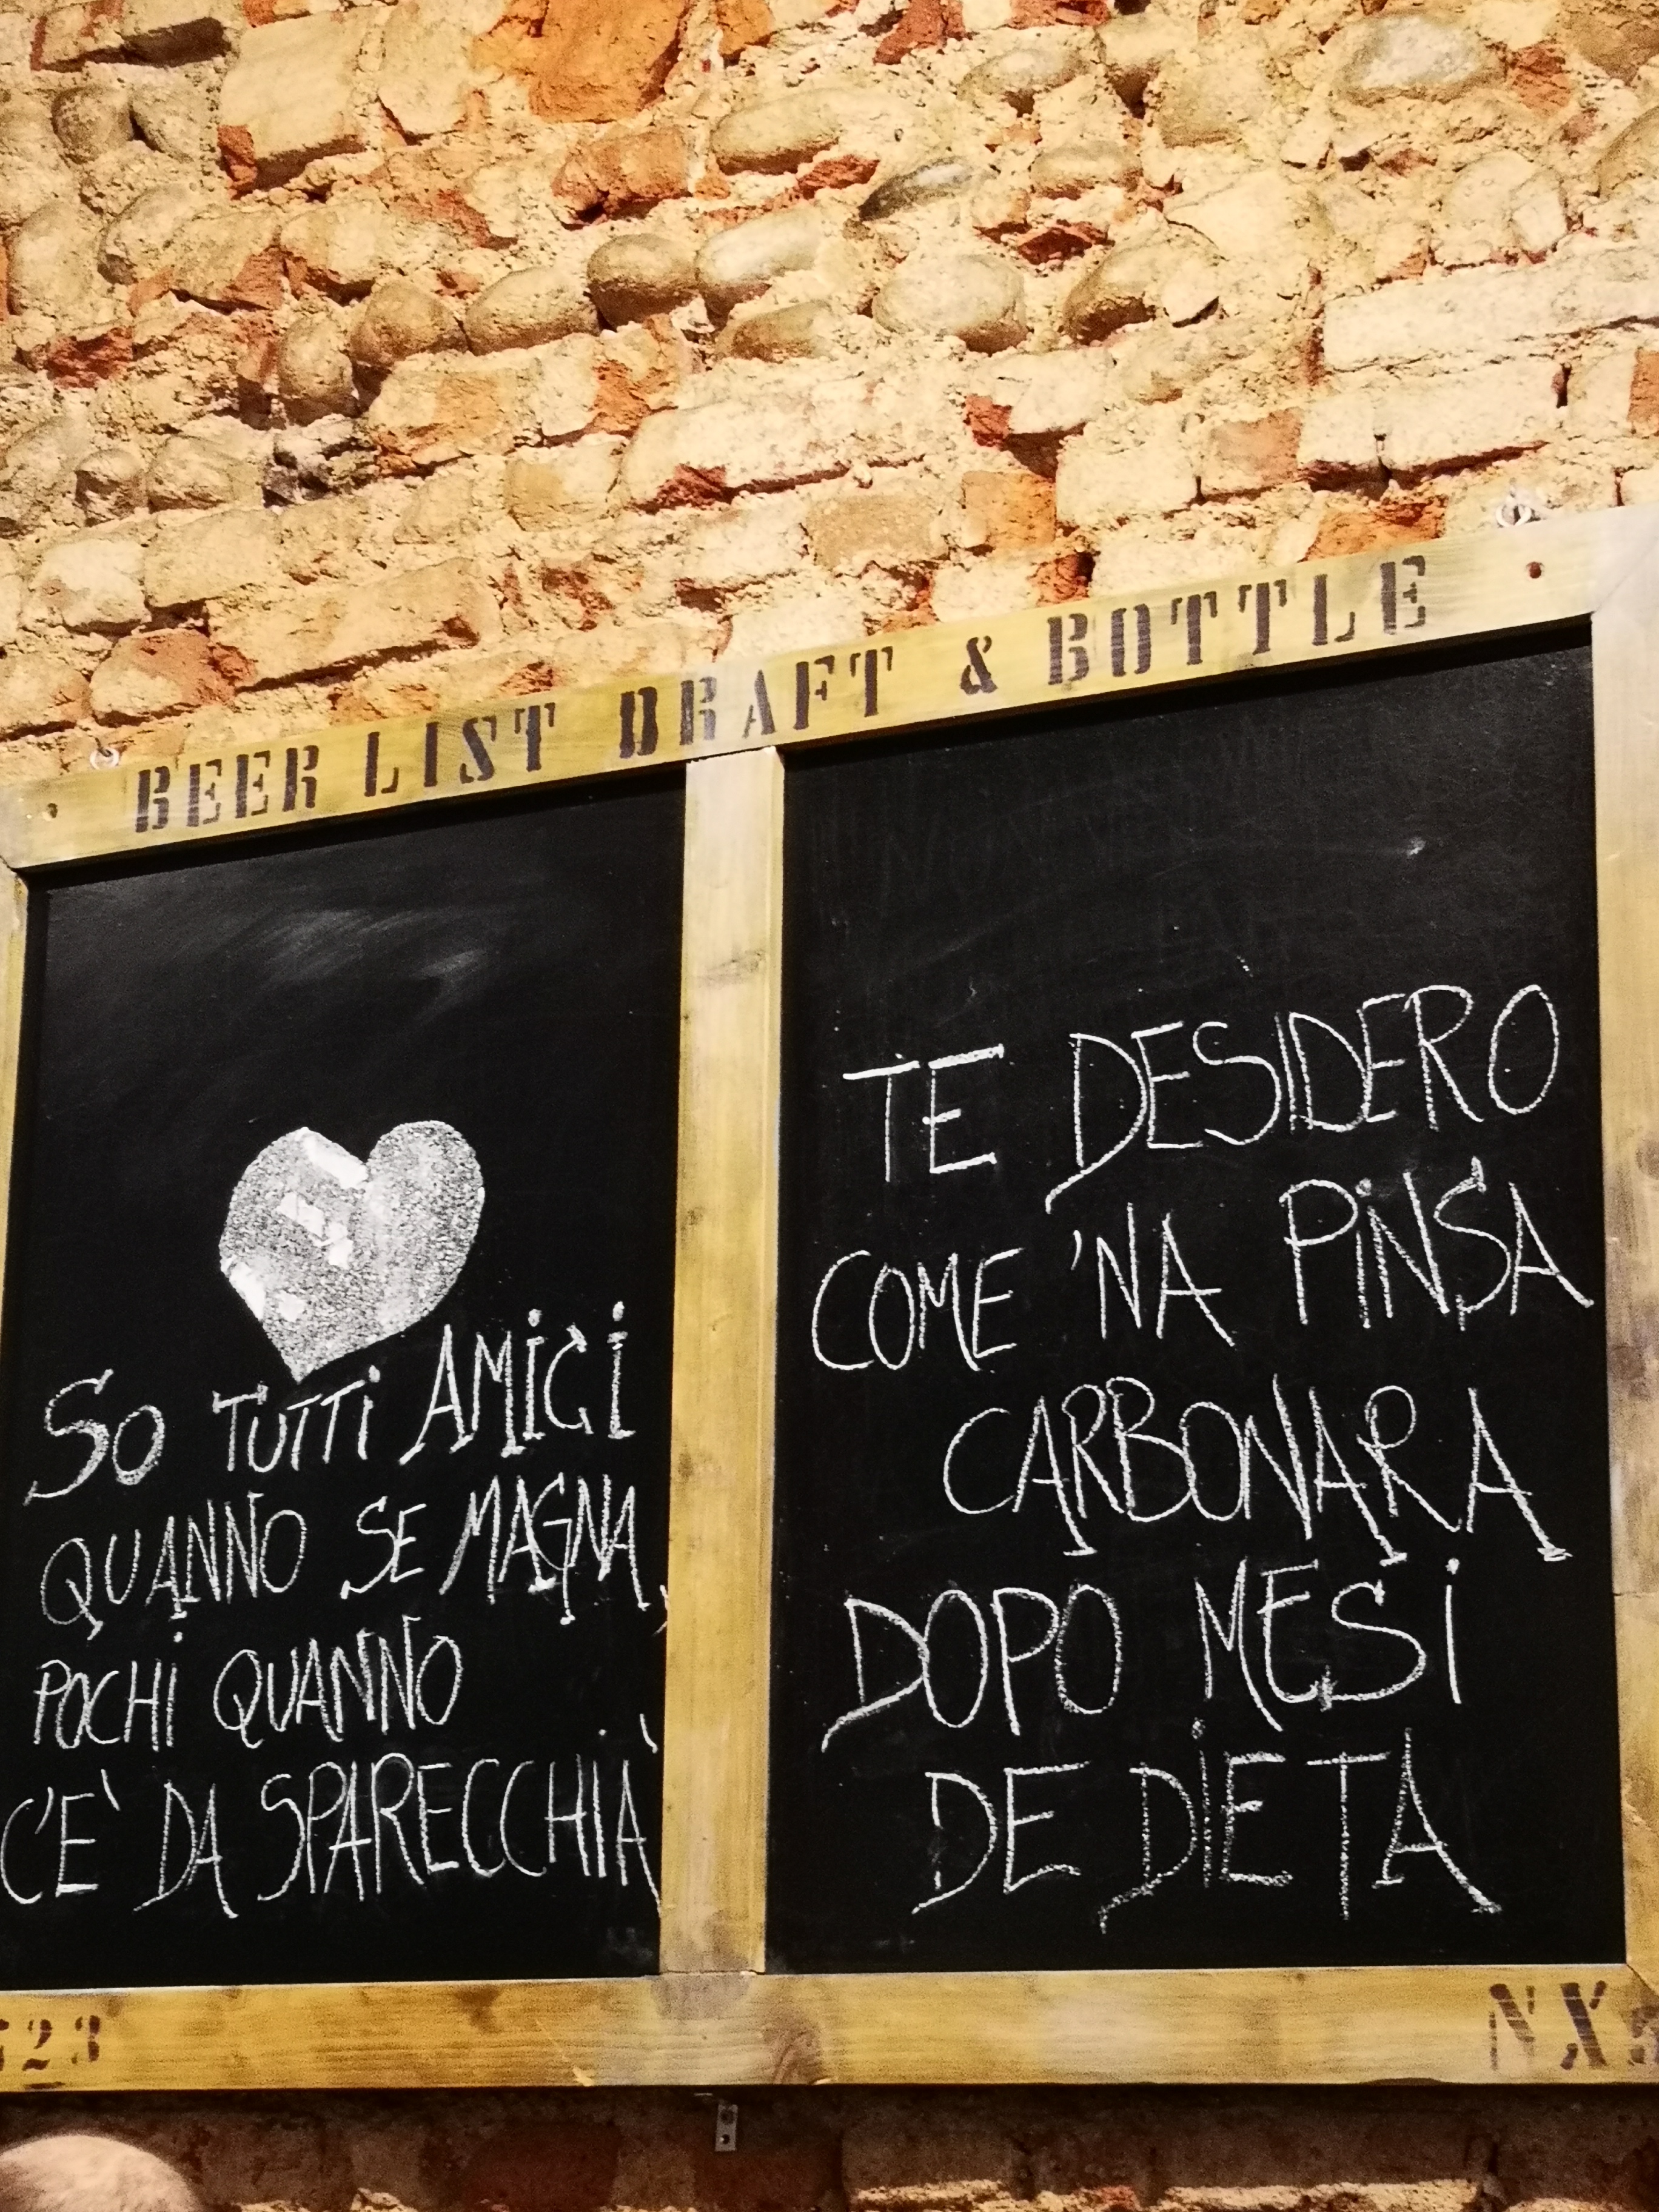 BEER LIST DRAFT & BOTTLE
So TUTTi AMiCi
QUANNO SE MAGNA,
POCHi QUANNO
C'E' DA SPARECCHIA'
TE DESIDERO
COME 'NA PiNSA
CARBONARA
DOPO MESi
DE DiETA
23
NX